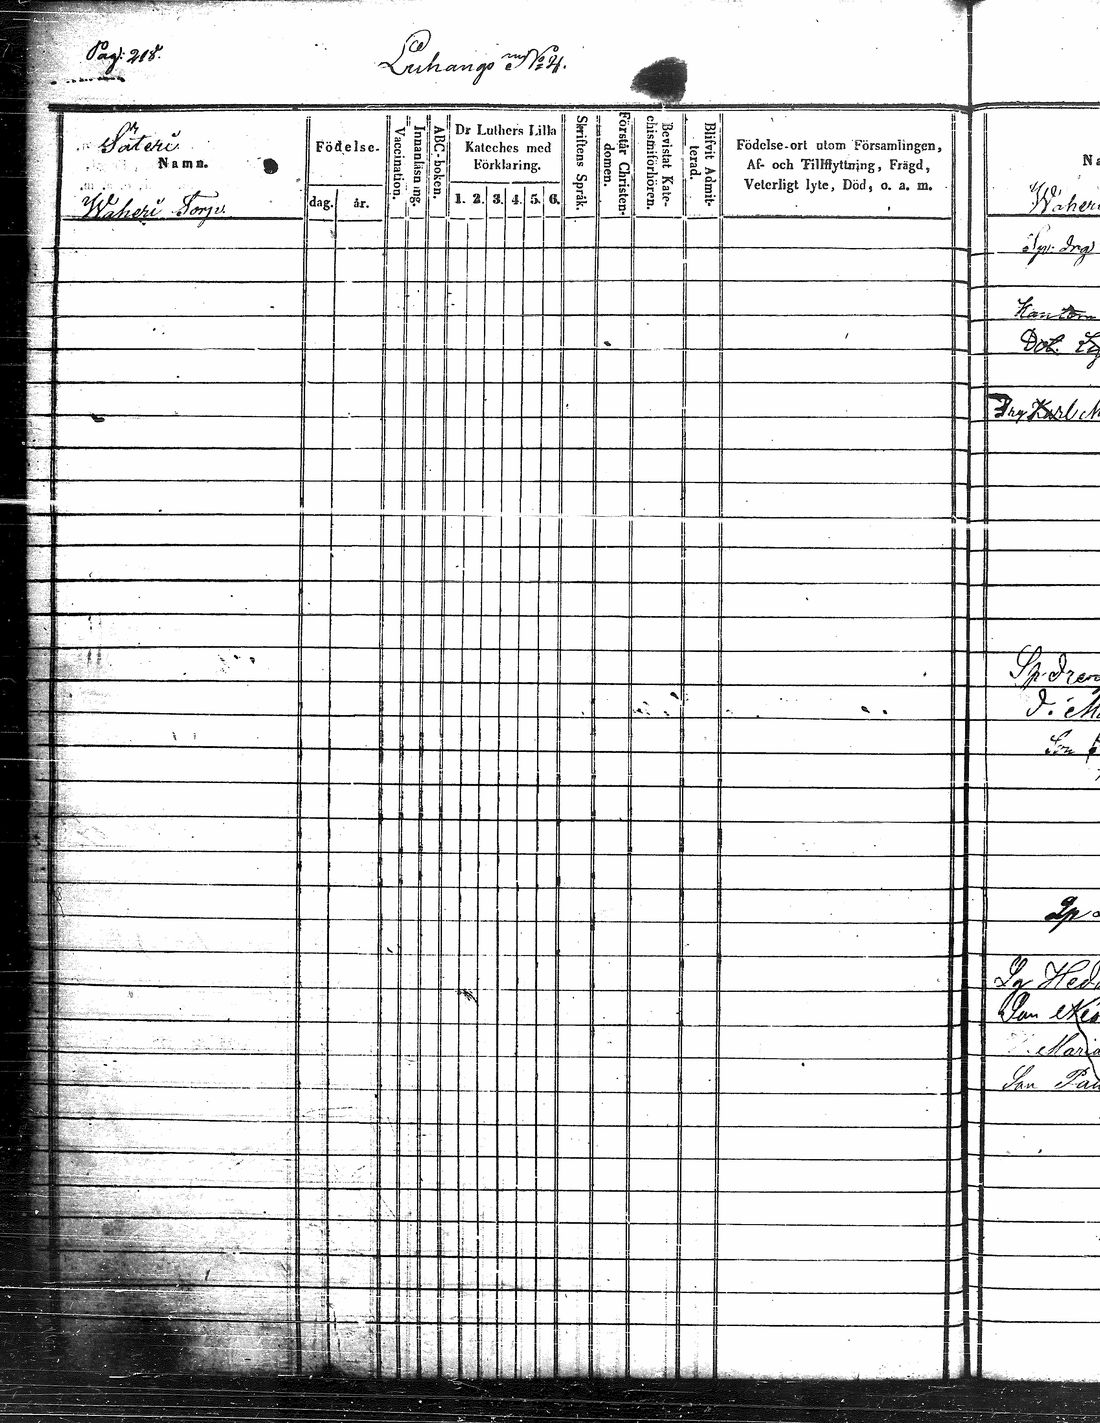 Pag: 218.
Luhangs N:o 4.
Säteri
Namn.
Waheri Torp.
Födelse.
dag. år.
Vaccination.
Innanläsning.
ABC-boken.
Dr Luthers Lilla
Kateches med
Förklaring.
1. 2. 3. 4. 5. 6.
Skriftens Språk.
Förstår Christen-
domen.
Bevistat Kate-
chismiförhören.
Blifvit Admit-
terad.
Födelse-ort utom Församlingen,
Af- och Tillflyttning, Frägd,
Veterligt lyte, Död, o. a. m.
Na
Waheri
Dot.
Karl
Sp.
D. Ma
Son
Sp
Hed
Son
Maria
Son Pau